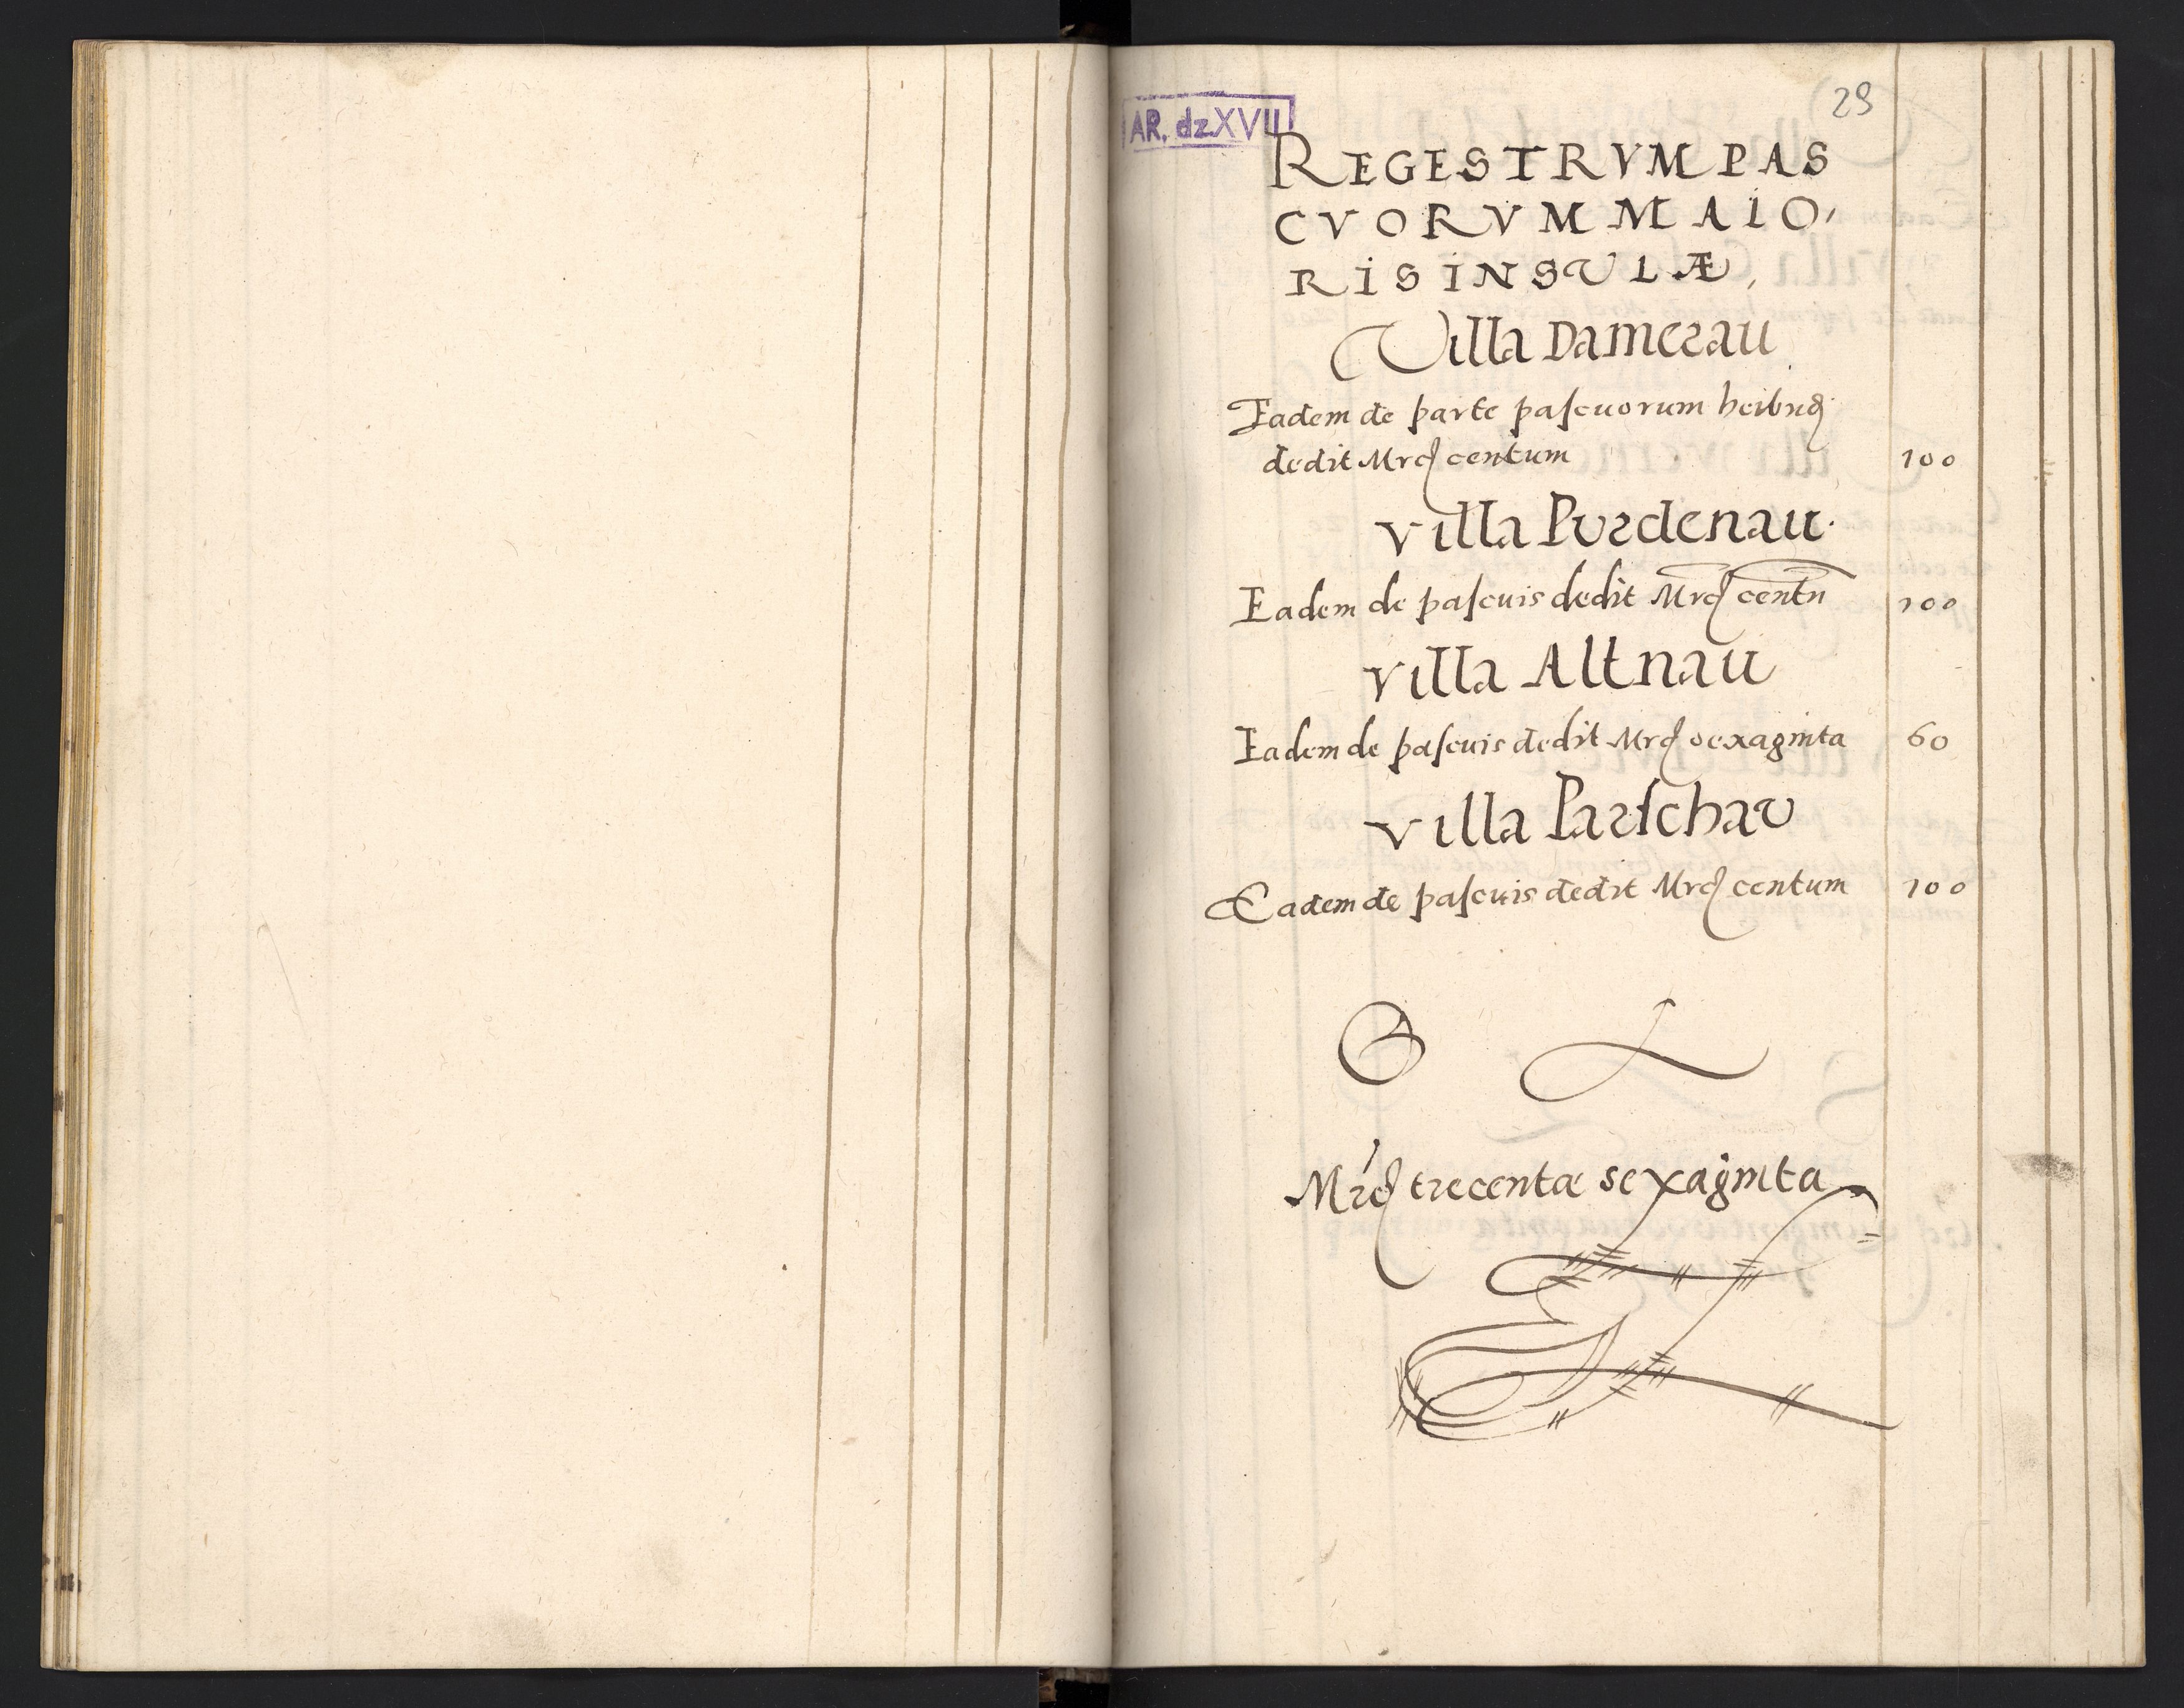 29
AR. dz. XVII
REGESTRVM PAS
CVORVM MAIO,
RIS INSULÆ,
Villa Damerau
Eadem de parte pascuorum
dedit Mrc centum 100
villa Purdenau.
Eadem de pascuis dedit Mrc centũ 100
villa Altnau
Eadem de pascuis dedit Mrc sexaginta 60
villa Parschav
Eadem de pascuis dedit Mrc centum 100
Mrc trecentæ sexaginta